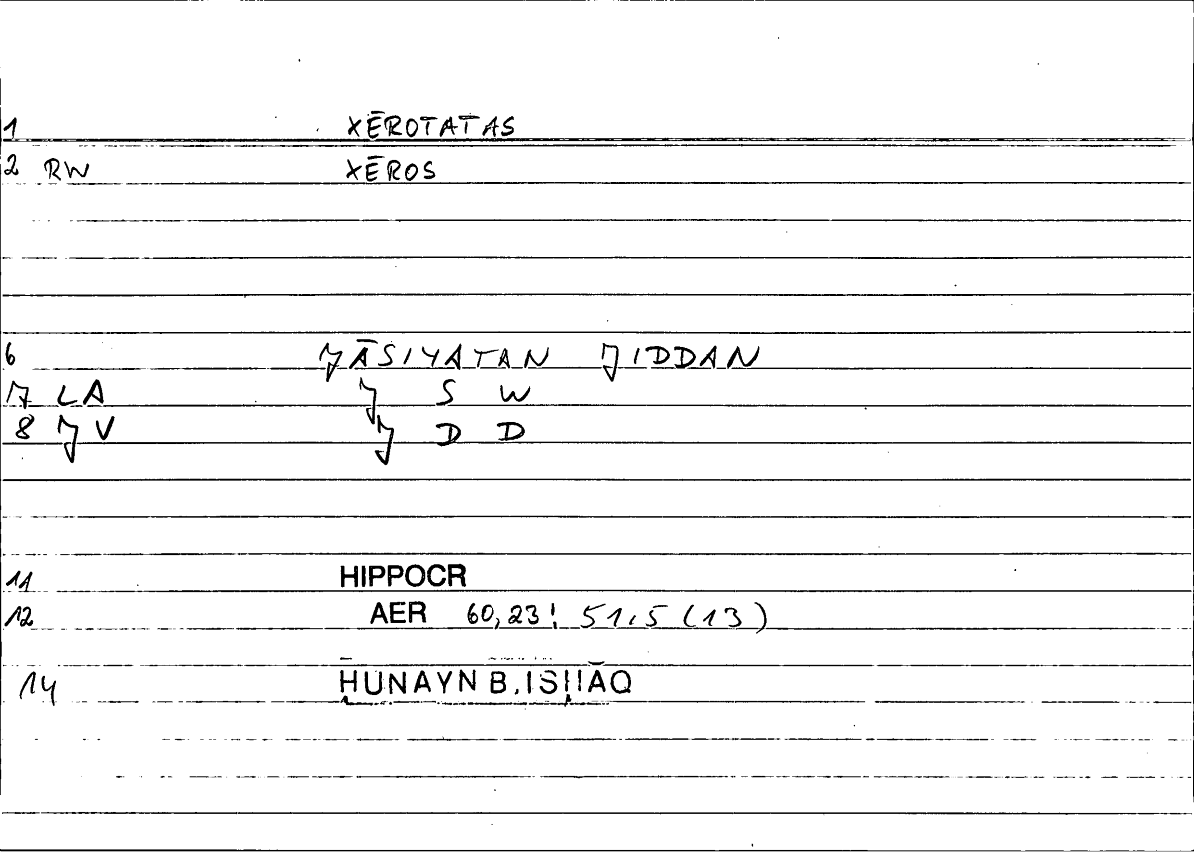 1 XĒROTATAS
2 RW XĒROS
6 ǦĀSIYATAN ǦIDDAN
17 LA Ǧ S W
8 ǦV Ǧ D D
11 HIPPOCR
12 AER 60,23; 51,5 (13)
14 ḤUNAYN B. ISḤĀQ